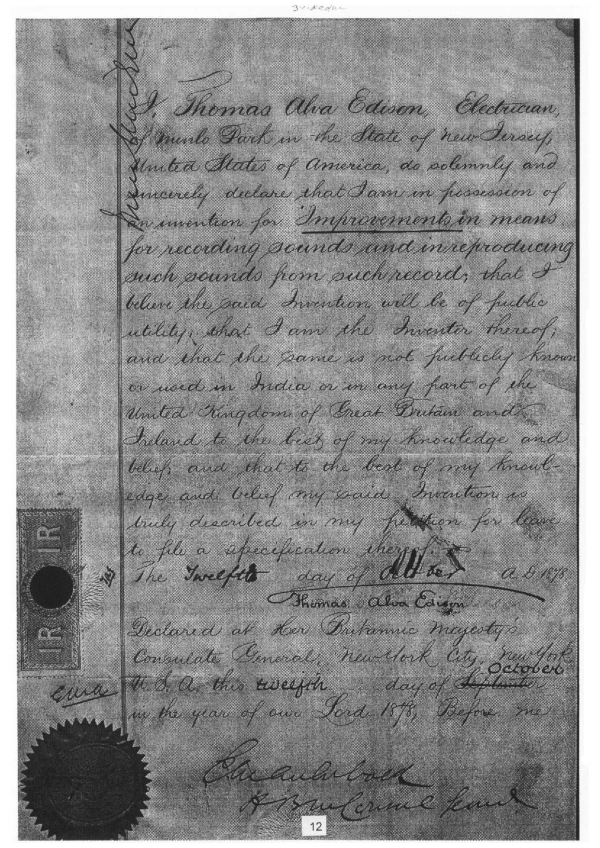 I, Thomas Alva Edison, Electrician,
of Menlo Park in the State of New Jersey,
United States of America, do solemnly and
sincerely declare that I am in possession of
an invention for Improvements in means
for recording sounds and in reproducing
such sounds from such record; that I
believe the said Invention will be of public
utility; that I am the Inventor thereof;
and that the same is not publicly known
or used in India or in any part of the
United Kingdom of Great Britain and
Ireland to the best of my knowledge and
belief; and that to the best of my knowl-
edge and belief my said Invention is
truly described in my petition for leave
to file a specification thereof.
The Twelfth day of October A.D. 1878
Thomas Alva Edison
Declared at Her Britannic Majesty's
Consulate General, New York City, New York
October
U.S.A. this twelfth day of September
in the year of our Lord 1878, Before me
IR
IR
12